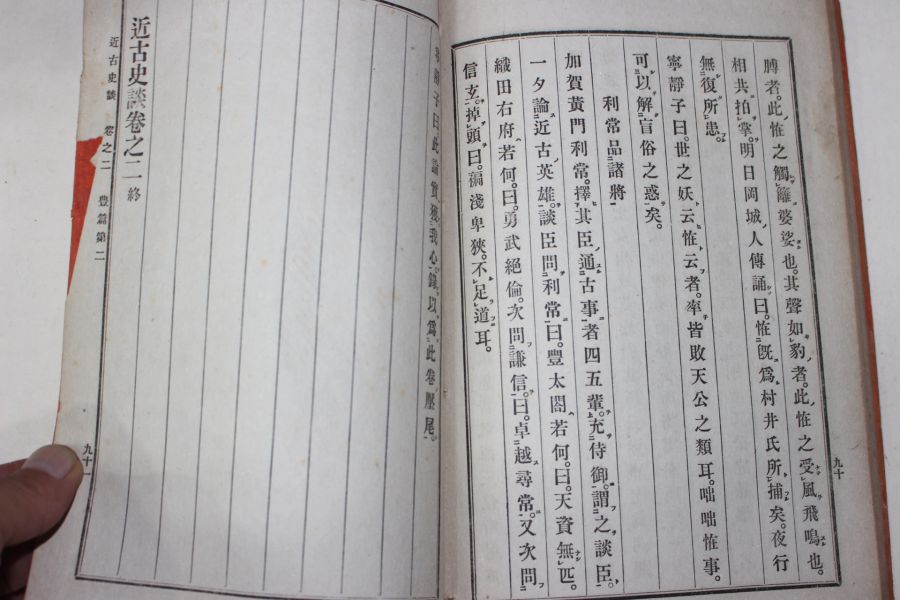 膊者。此怪之觸籬婆娑也。其聲如豹者。此怪之受風飛鳴也。
相共拍掌。明日岡城人傳誦曰。怪既爲村井氏所捕矣。夜行
無復所患。
寧靜子曰。世之妖云怪云者。率皆敗天公之類耳。咄咄怪事。
可以解盲俗之惑矣。
利常品諸將
加賀黃門利常。擇其臣通古事者四五輩。充侍御。謂之談臣。
一夕論近古英雄。談臣問利常曰。豐太閤若何。曰。天資無匹。
織田右府若何。曰。勇武絕倫。次問謙信。曰。卓越尋常。又次問
信玄。掉頭曰。褊淺卑狹。不足道耳。
九十
子曰此論實獲我心。錄以爲此卷壓尾。
近古史談卷之二終
近古史談 卷之二 豊篇第二
九十一